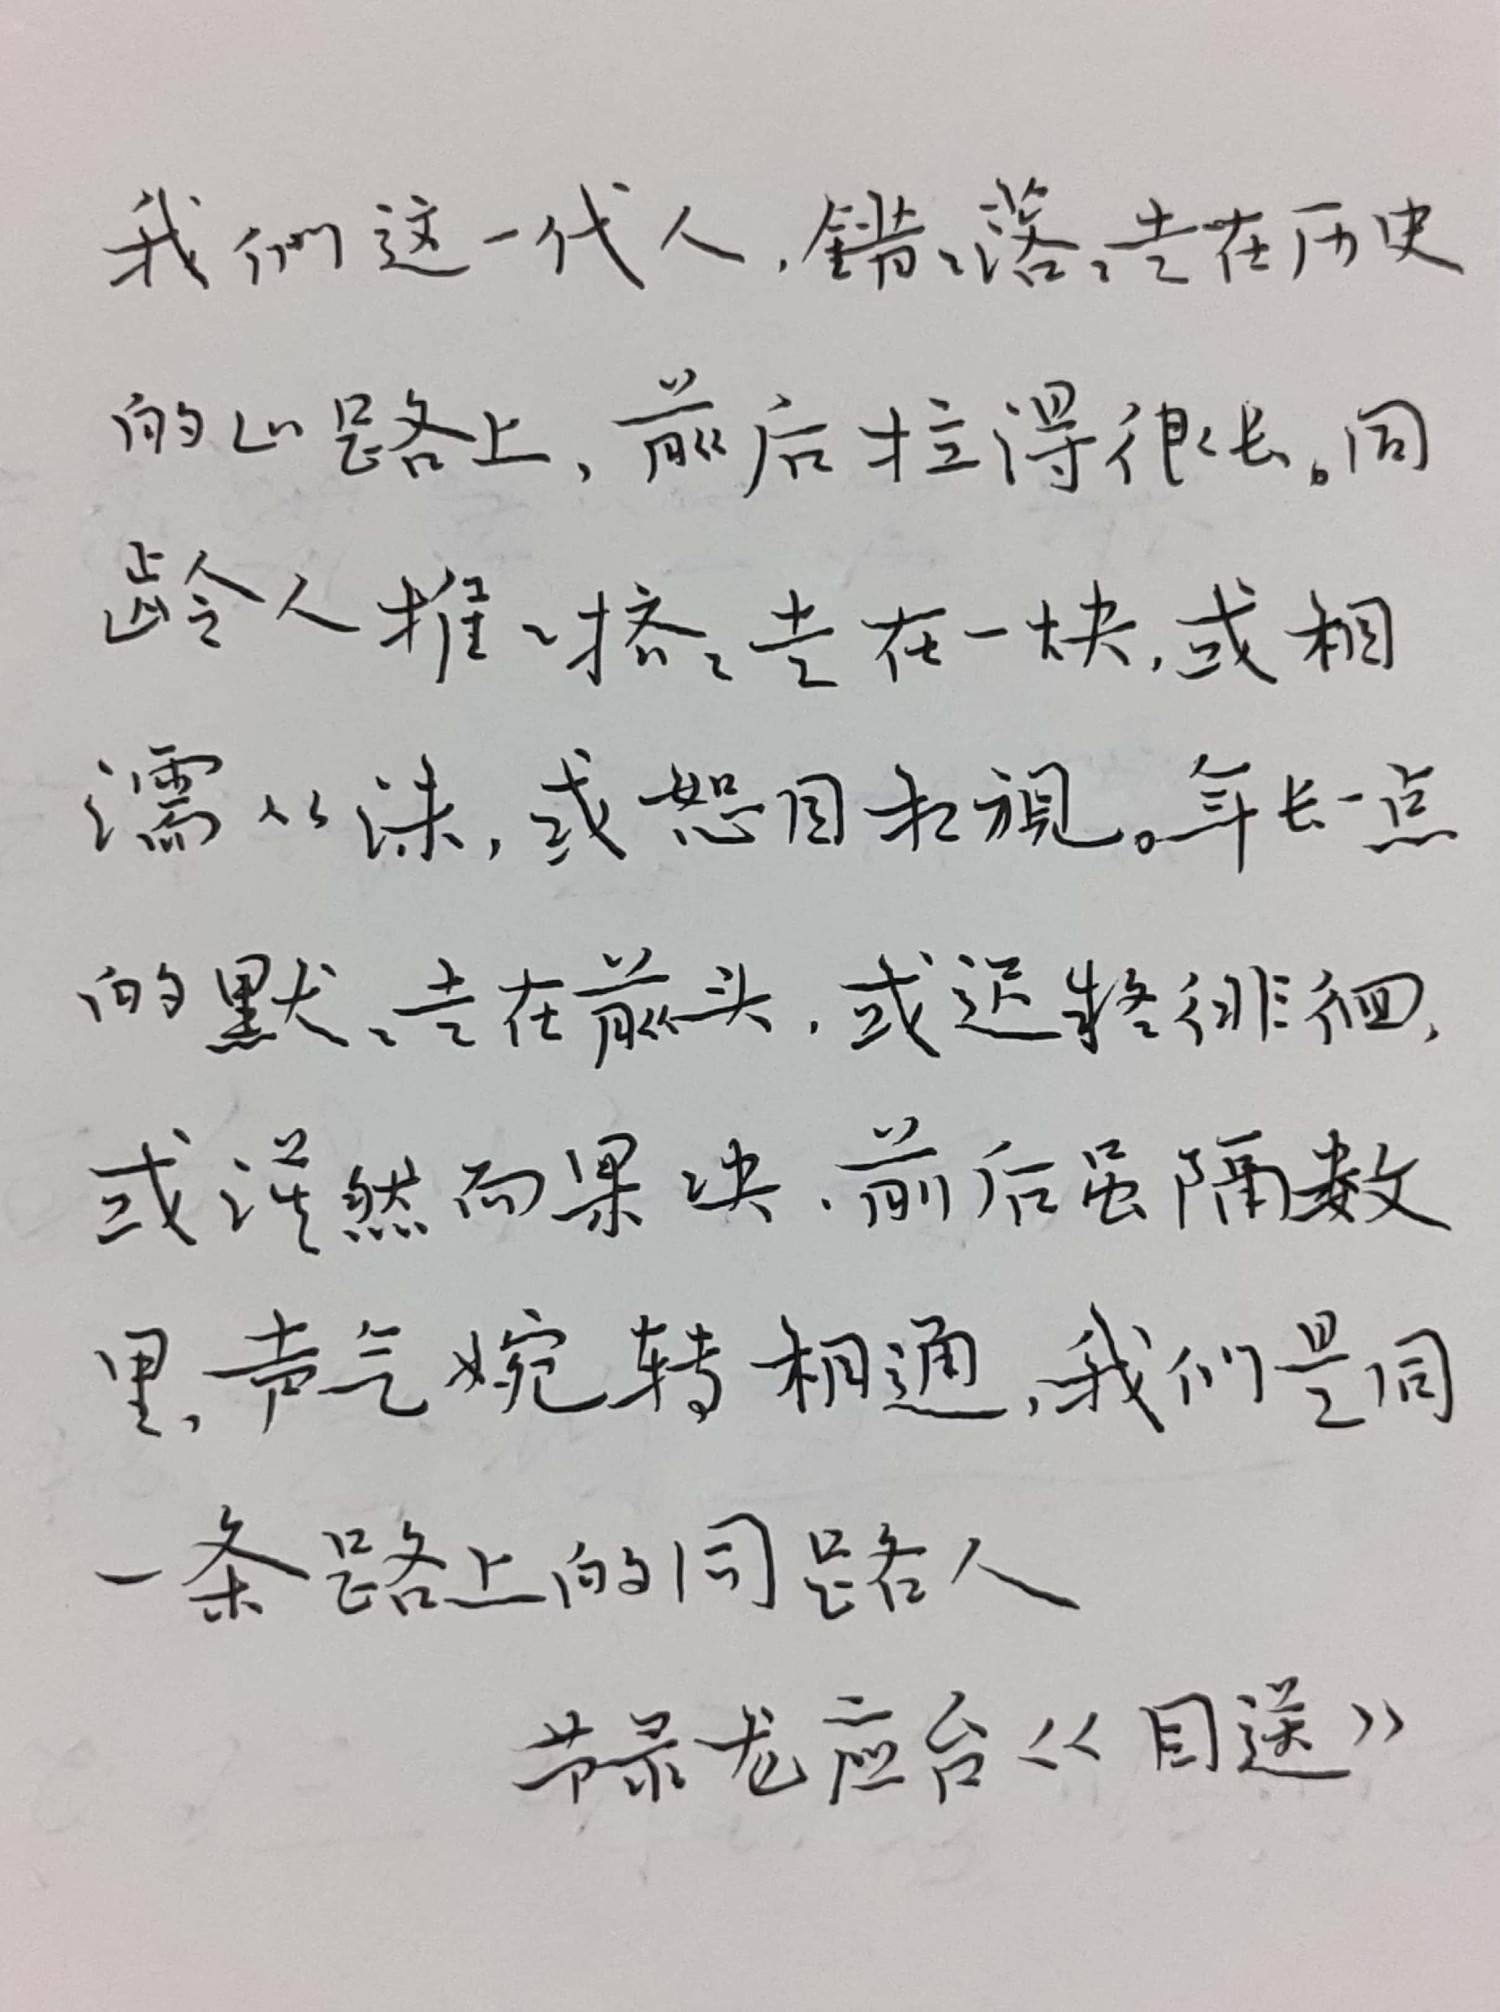 我们这一代人，错错落落走在历史
的山路上，前后拉得很长。同
龄人推推挤挤走在一块，或相
濡以沫，或怒目相视。年长一点
的默默走在前头，或迟疑徘徊，
或漠然而果决．前后虽隔数
里，声气婉转相通，我们是同
一条路上的同路人
节录龙应台《目送》